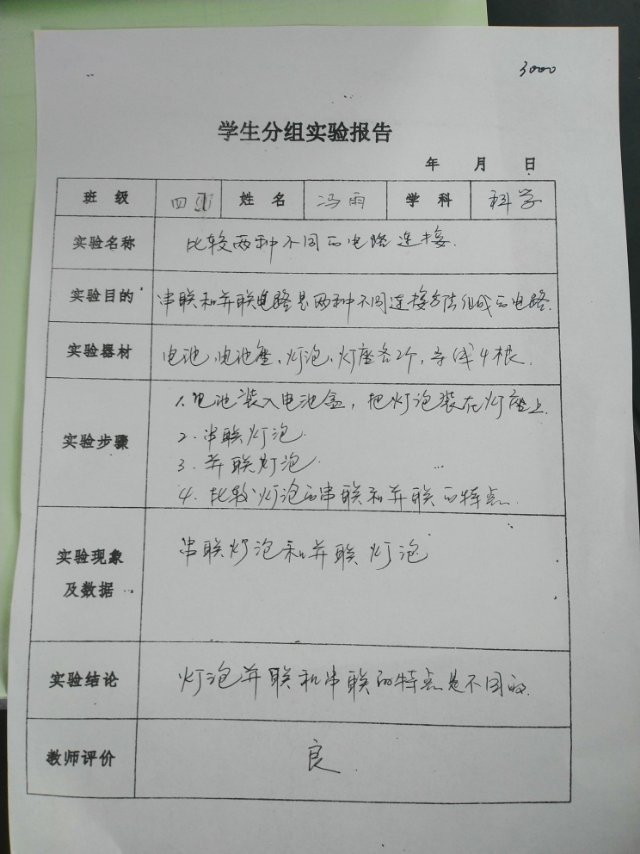 3000
学生分组实验报告
年 月 日
班 级 四 姓 名 冯雨 学 科 科学
实验名称 比较两种不同的电路连接.
实验目的 串联和并联电路是两种不同连接方法组成的电路.
实验器材 电池、电池座、灯泡、灯座各2个,导线4根.
1.电池装入电池盒,把灯泡装在灯座上.
2.串联灯泡
实验步骤
3.并联灯泡.
4.比较灯泡的串联和并联的特点.
串联灯泡和并联灯泡
实验现象
及数据
实验结论 灯泡并联和串联的特点是不同的.
教师评价 良.